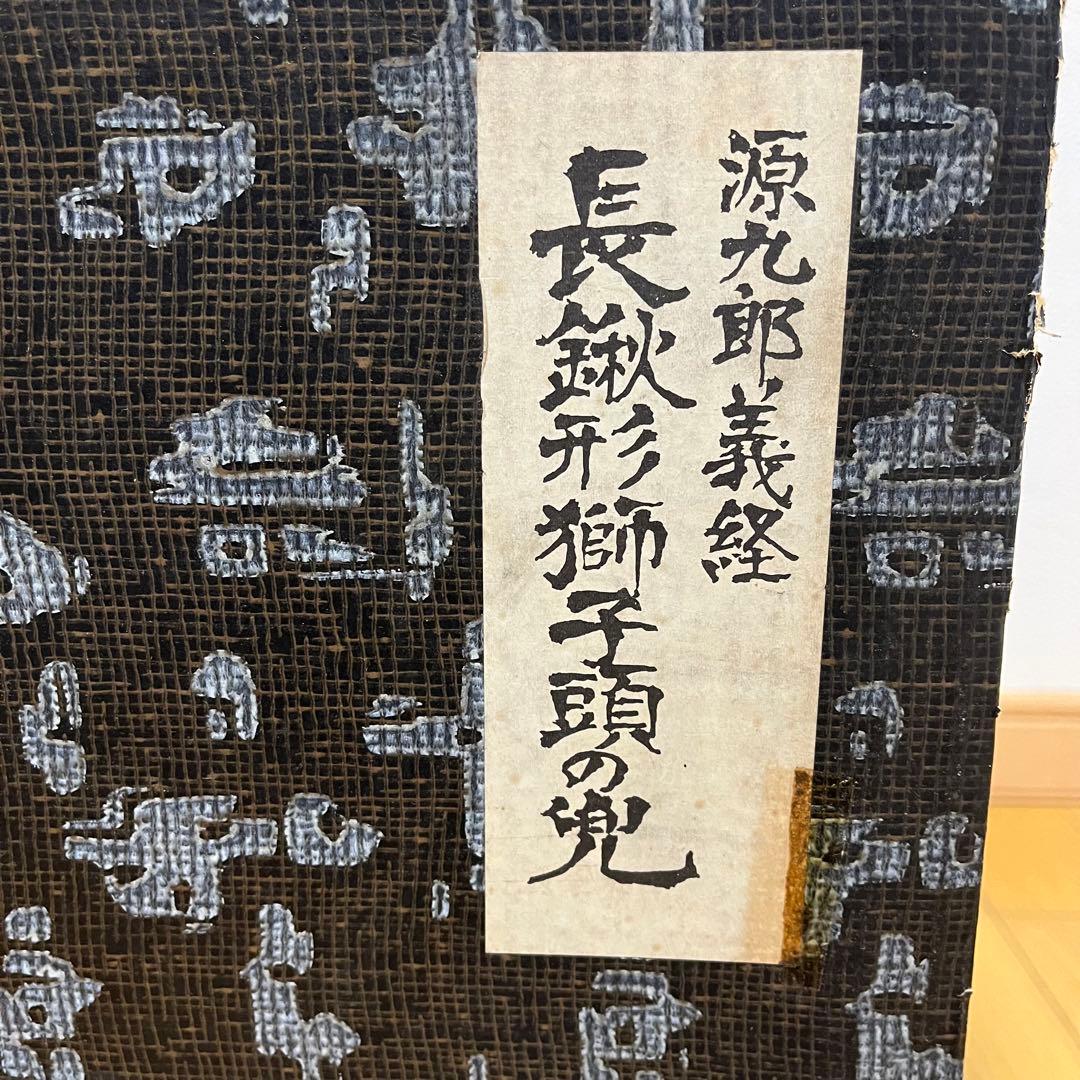 源九郎義経
長鍬形獅子頭の兜